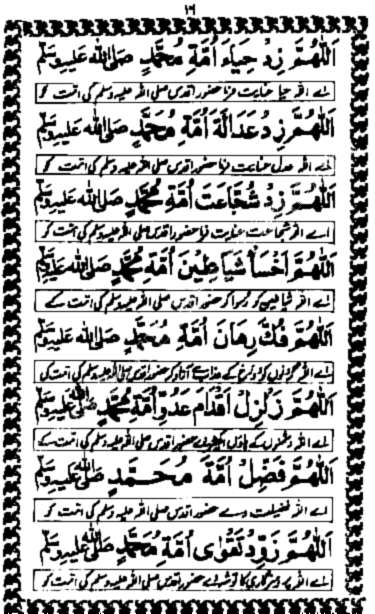 ۱۶
اَللّٰهُمَّ زِدْ حَيَاءَ اُمَّةِ مُحَمَّدٍ صَلَّى اللهُ عَلَيْهِ وَسَلَّمَ
اے اللہ حیا عنایت فرما حضور اقدس صلی اللہ علیہ وسلم کی امت کو
اَللّٰهُمَّ زِدْ عَدَالَةَ اُمَّةِ مُحَمَّدٍ صَلَّى اللهُ عَلَيْهِ وَسَلَّمَ
اے اللہ عدل عنایت فرما حضور اقدس صلی اللہ علیہ وسلم کی امت کو
اَللّٰهُمَّ زِدْ شُجَاعَتَ اُمَّةِ مُحَمَّدٍ صَلَّى اللهُ عَلَيْهِ وَسَلَّمَ
اے اللہ شجاعت عنایت فرما حضور اقدس صلی اللہ علیہ وسلم کی امت کو
اَللّٰهُمَّ اخْسَأْ شَيَاطِيْنَ اُمَّةِ مُحَمَّدٍ صَلَّى اللهُ عَلَيْهِ وَسَلَّمَ
اے اللہ شیاطین کو رسوا کر حضور اقدس صلی اللہ علیہ وسلم کی امت کے
اَللّٰهُمَّ فُكَّ رِهَانَ اُمَّةِ مُحَمَّدٍ صَلَّى اللهُ عَلَيْهِ وَسَلَّمَ
اے اللہ گردنوں کو دوزخ کے عذاب سے آزاد کر حضور اقدس صلی اللہ علیہ وسلم کی امت کی
اَللّٰهُمَّ زَلْزِلْ اَقْدَامَ عَدُوِّ اُمَّةِ مُحَمَّدٍ صَلَّى اللهُ عَلَيْهِ وَسَلَّمَ
اے اللہ دشمنوں کے پاؤں اکھیڑ دے حضور اقدس صلی اللہ علیہ وسلم کی امت کے
اَللّٰهُمَّ فَضِّلْ اُمَّةَ مُحَمَّدٍ صَلَّى اللهُ عَلَيْهِ وَسَلَّمَ
اے اللہ فضیلت دے حضور اقدس صلی اللہ علیہ وسلم کی امت کو
اَللّٰهُمَّ زَوِّدْ تَقْوٰى اُمَّةِ مُحَمَّدٍ صَلَّى اللهُ عَلَيْهِ وَسَلَّمَ
اے اللہ پرہیزگاری کا توشہ دے حضور اقدس صلی اللہ علیہ وسلم کی امت کو